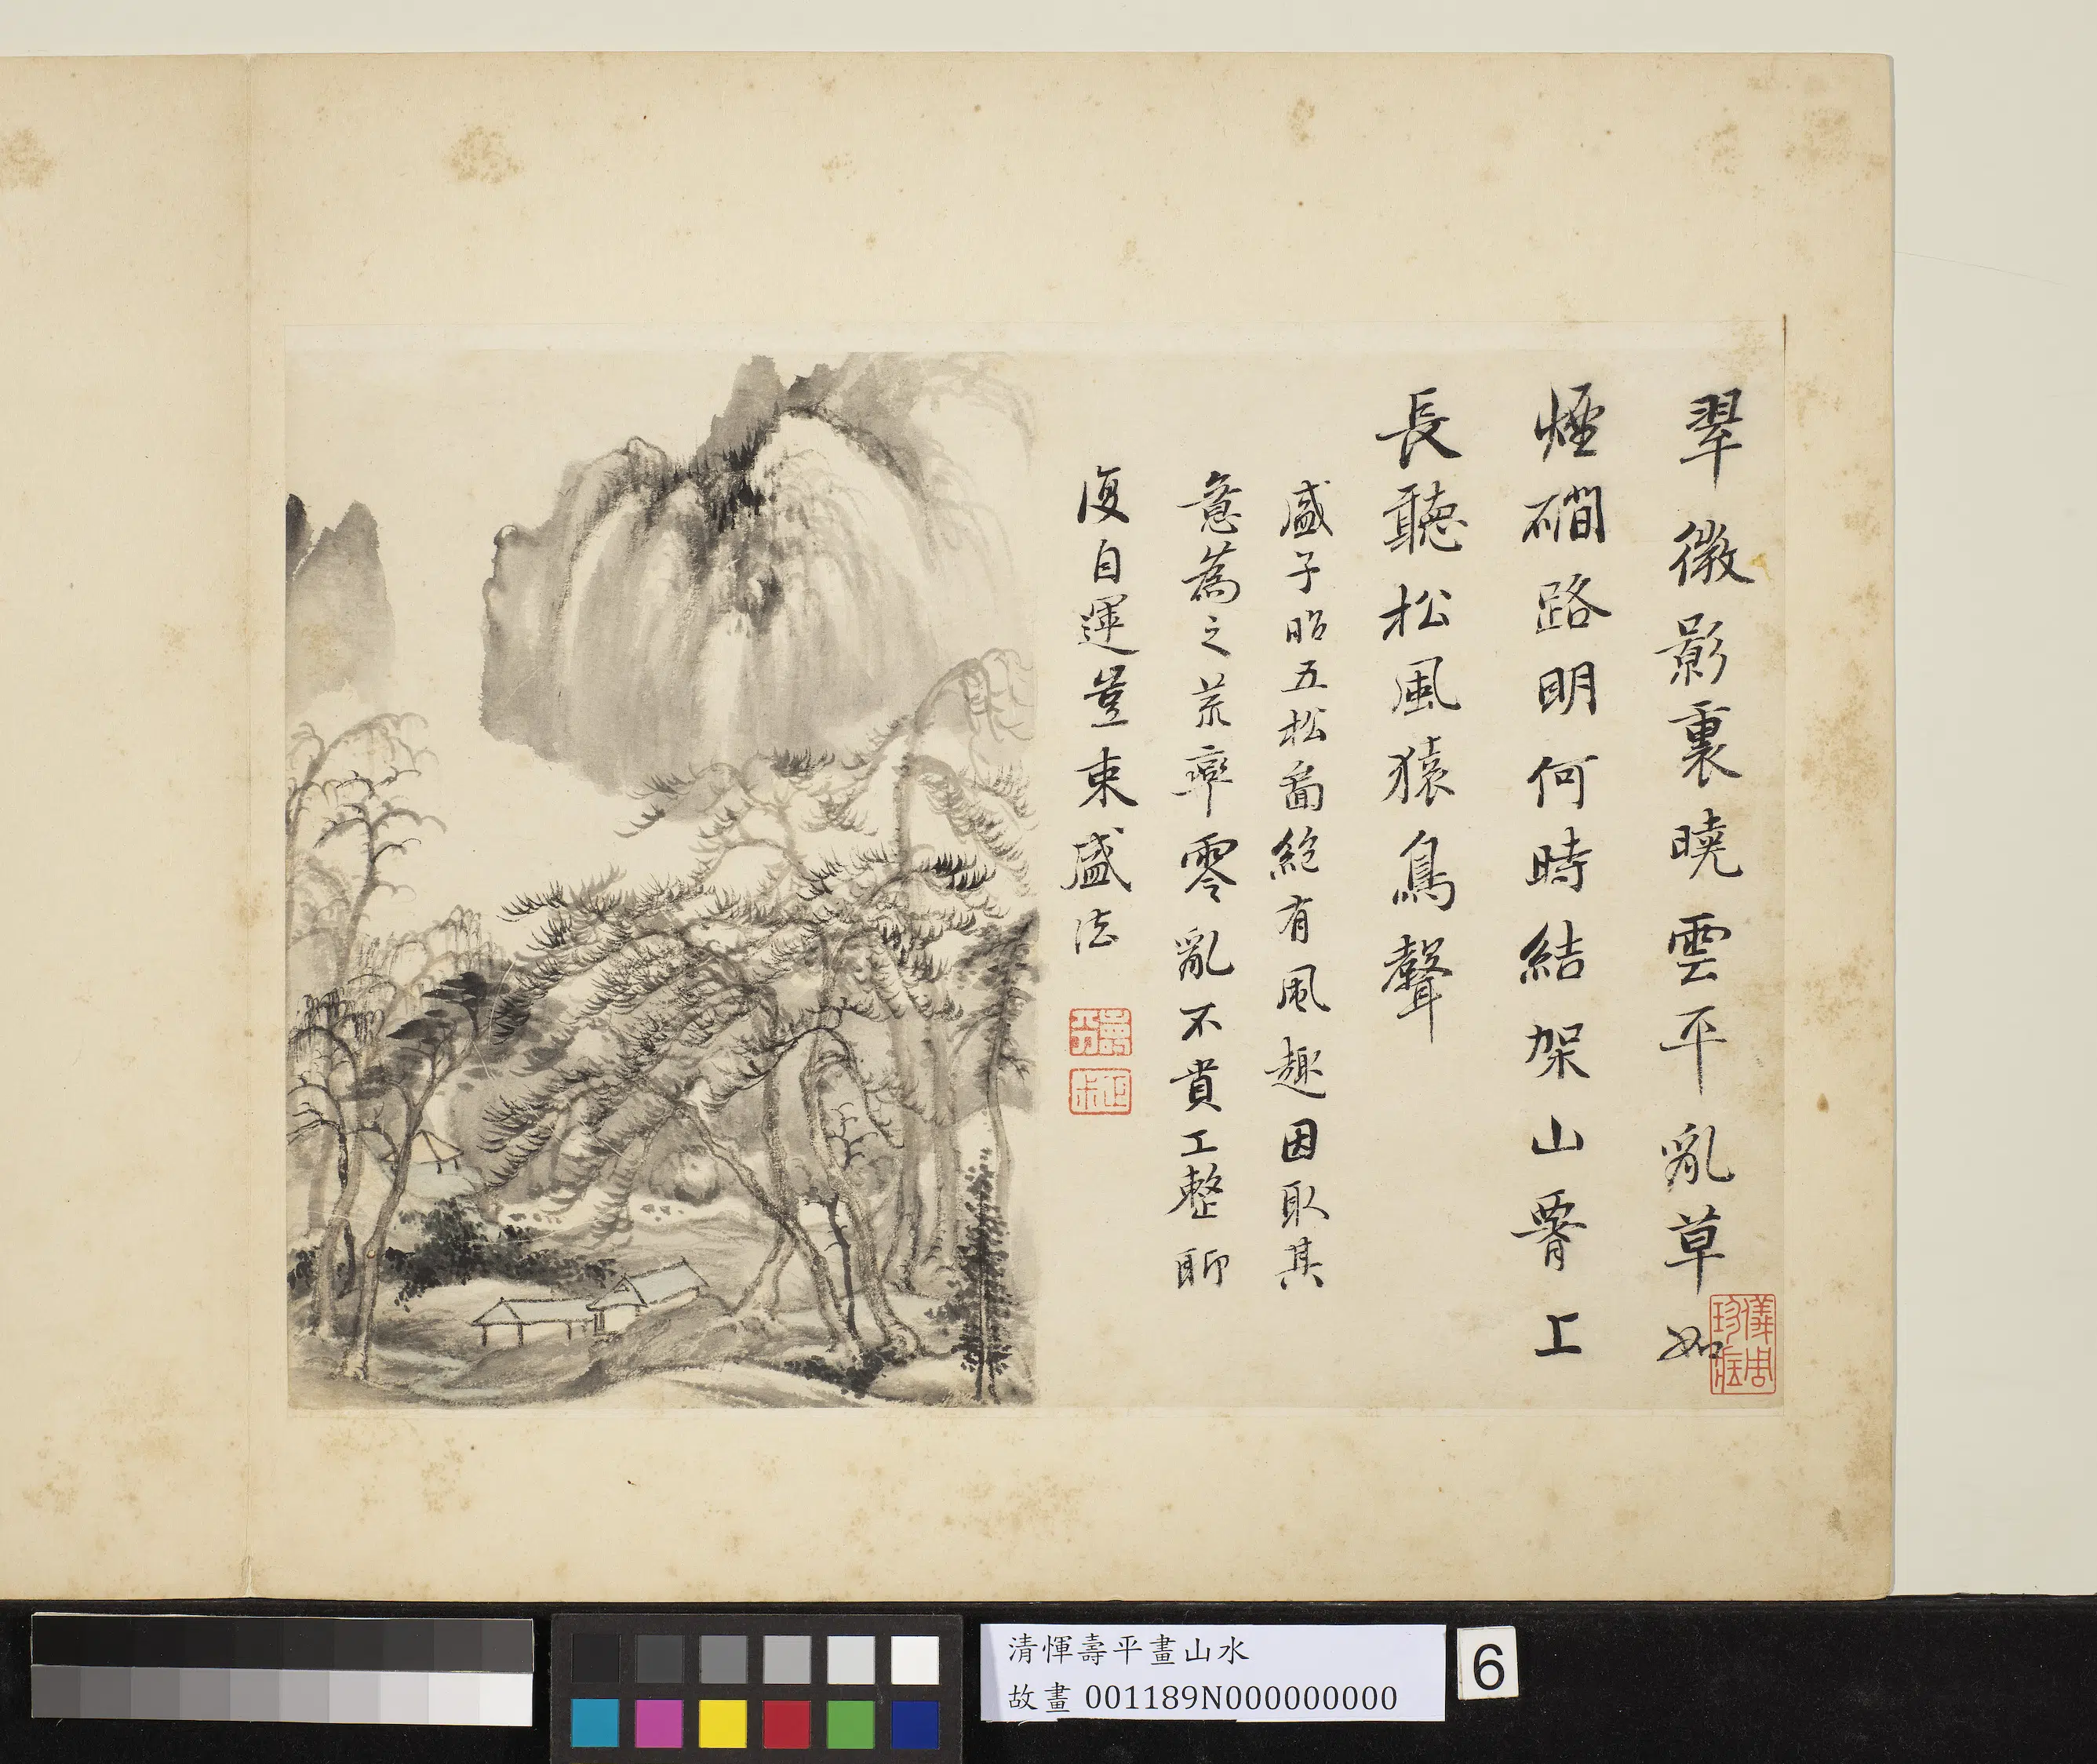 翠微影裏曉雲平亂草如
煙磵路明何時結架山脊上
長聽松風猿鳥聲
盛子昭五松圖絕有風趣因取其
意為之荒率零亂不貴工整聊
復自運豈束盛法
壽平
正叔
儀周珍藏
清惲壽平畫山水
故畫 001189N000000000
6